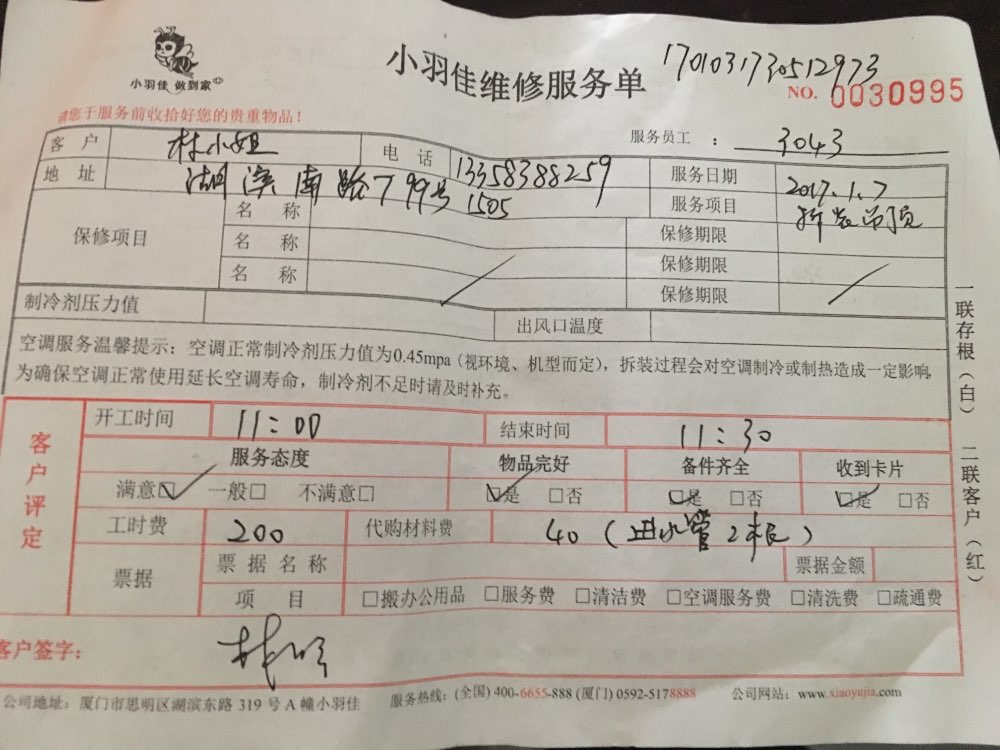 小羽佳 做到家
小羽佳维修服务单
1701031730512973
NO. 0030995
请您于服务前收拾好您的贵重物品！
服务员工 ： 3043
客 户 林小姐 电 话 13358388259 服务日期 2017.1.7
地 址 湖滨南路799号1505 服务项目 拆装吊顶
保修项目 名 称 保修期限
名 称 保修期限
名 称 保修期限
制冷剂压力值 出风口温度
空调服务温馨提示：空调正常制冷剂压力值为0.45mpa（视环境、机型而定），拆装过程会对空调制冷或制热造成一定影响，
为确保空调正常使用延长空调寿命，制冷剂不足时请及时补充。
客户评定
开工时间 11:00 结束时间 11:30
服务态度 物品完好 备件齐全 收到卡片
满意☑ 一般□ 不满意□ ☑是 □否 ☑是 □否 ☑是 □否
工时费 200 代购材料费 40（进水管2根）
票据 票 据 名 称 票据金额
项 目 □搬办公用品 □服务费 □清洁费 □空调服务费 □清洗费 □疏通费
客户签字：
公司地址：厦门市思明区湖滨东路 319 号 A 幢小羽佳 服务热线：(全国) 400-6655-888 (厦门) 0592-5178888 公司网站：www.xiaoyujia.com
一联存根（白） 二联客户（红）